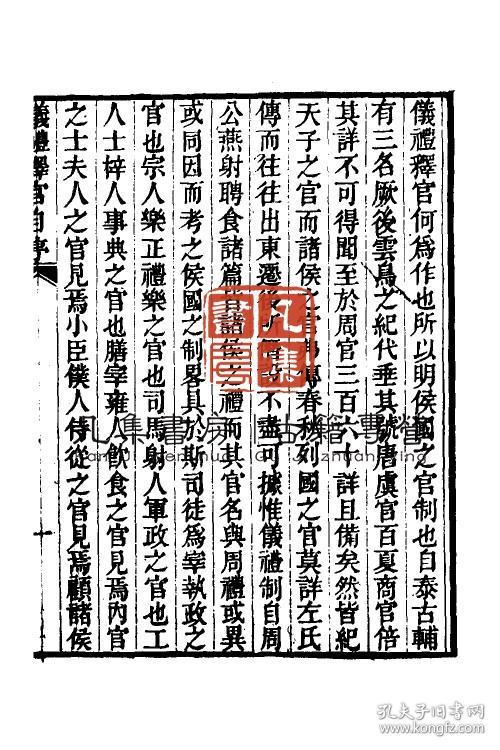 儀禮釋官何爲作也所以明侯國之官制也自泰古輔
有三名厥後雲鳥之紀代垂其號唐虞官百夏商官倍
其詳不可得聞至於周官三百六十詳且備矣然皆紀
天子之官而諸侯之官弗傳春秋列國之官莫詳左氏
傳而往往出東遷後所僭設不盡可據惟儀禮制自周
公燕射聘食諸篇皆諸侯之禮而其官名與周禮或異
或同因而考之侯國之制畧具於斯司徒爲宰執政之
官也宗人樂正禮樂之官也司馬射人軍政之官也工
人士梓人事典之官也膳宰雍人飮食之官見焉內官
之士夫人之官見焉小臣僕人侍從之官見焉顧諸侯
儀禮釋官自序
凡集書房
凡集書房 古籍專營
孔夫子旧书网
www.kongfz.com